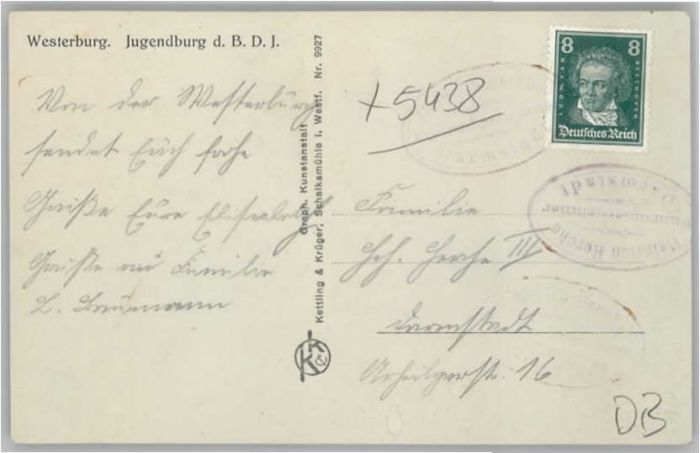 Westerburg. Jugendburg d. B. D. J.
Von der Westerburg
sendet Euch frohe
Grüße Eure Elisabeth
Grüße an Familie
L. Baumann
Graph. Kunstanstalt
Kettling & Krüger, Schalksmühle i. Westf. Nr. 9927
+5438
8 8
BEETHOVEN
Deutsches Reich
Familie
III
Darmstadt
Arheilgerstr. 16
Darmstadt
DB